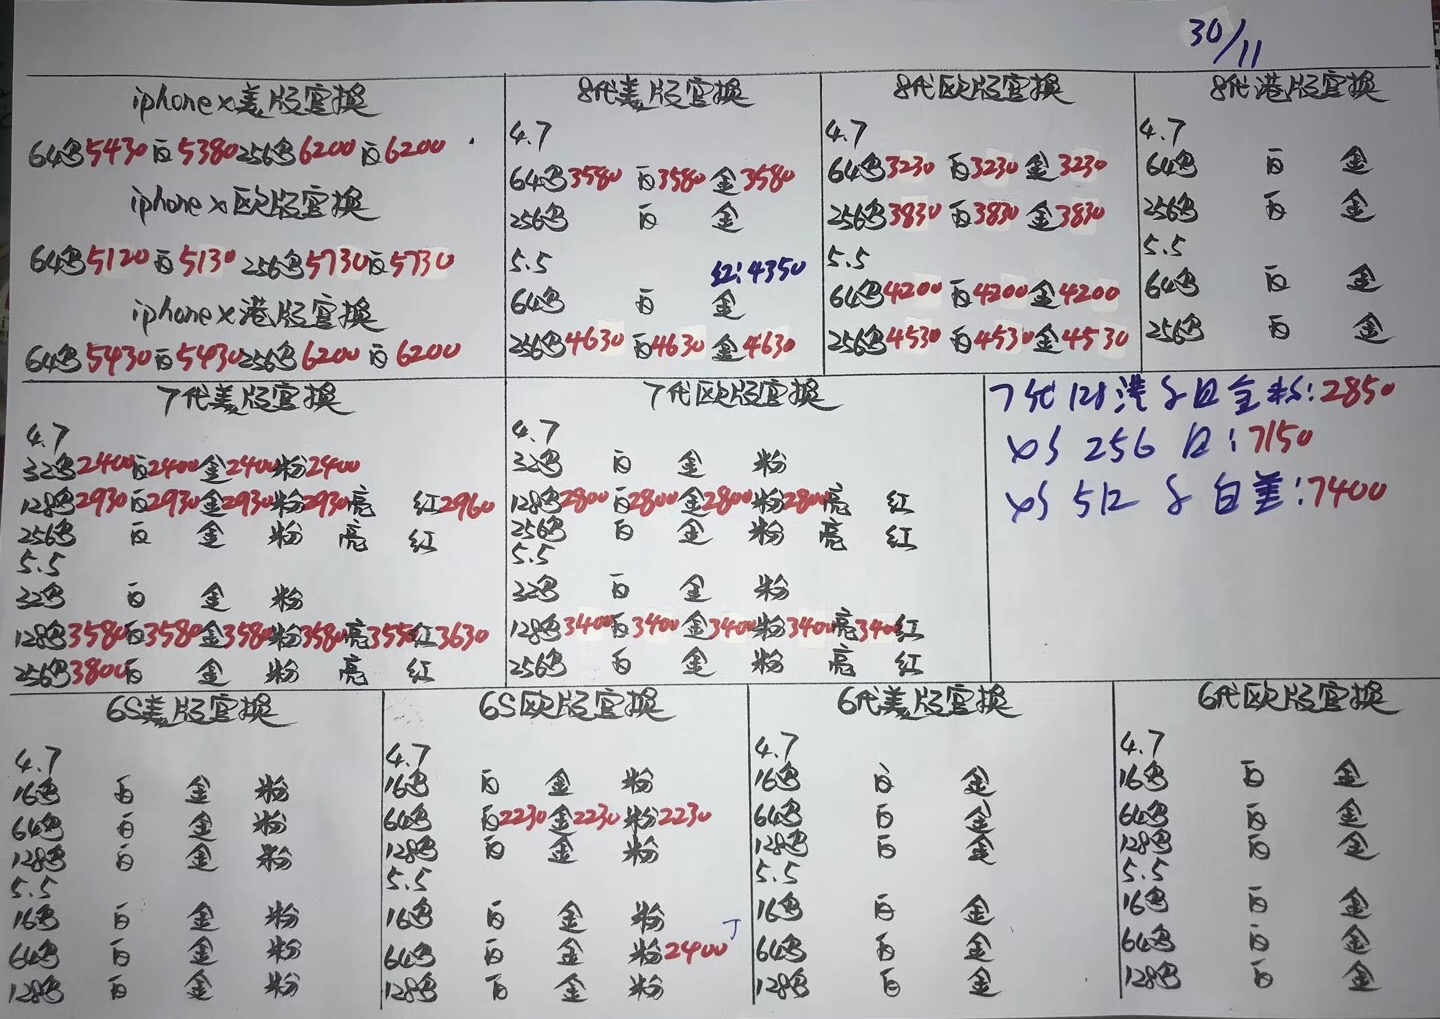 30/11
iphone x美版官换
64黑5430白5380 256黑6200白6200
iphone x欧版官换
64黑5120白5130 256黑5730白5730
iphone x港版官换
64黑5430白5430 256黑6200白6200
8代美版官换
4.7
64黑3580 白3580 金3580
256黑 白 金
5.5 红:4350
64黑 白 金
256黑4630 白4630 金4630
8代欧版官换
4.7
64黑3230 白3230 金3230
256黑3830 白3830 金3830
5.5
64黑4200 白4200 金4200
256黑4530 白4530 金4530
8代港版官换
4.7
64黑 白 金
256黑 白 金
5.5
64黑 白 金
256黑 白 金
7代美版官换
4.7
32黑2400白2400金2400粉2400
128黑2930白2930金2930粉2930亮 红2960
256黑 白 金 粉 亮 红
5.5
32黑 白 金 粉
128黑3580白3580金3580粉3580亮3550红3630
256黑3800白 金 粉 亮 红
7代欧版官换
4.7
32黑 白 金 粉
128黑2800白2800金2800粉2800亮 红
256黑 白 金 粉 亮 红
5.5
32黑 白 金 粉
128黑3400白3400金3400粉3400亮3400红
256黑 白 金 粉 亮 红
7代128港 白金粉:2850
XS 256 白:7150
XS 512 白美:7400
6S美版官换
4.7
16黑 白 金 粉
64黑 白 金 粉
128黑 白 金 粉
5.5
16黑 白 金 粉
64黑 白 金 粉
128黑 白 金 粉
6S欧版官换
4.7
16黑 白 金 粉
64黑 白2230金2230粉2230
128黑 白 金 粉
5.5
16黑 白 金 粉
64黑 白 金 粉2400
128黑 白 金 粉
6代美版官换
4.7
16黑 白 金
64黑 白 金
128黑 白 金
5.5
16黑 白 金
64黑 白 金
128黑 白 金
6代欧版官换
4.7
16黑 白 金
64黑 白 金
128黑 白 金
5.5
16黑 白 金
64黑 白 金
128黑 白 金